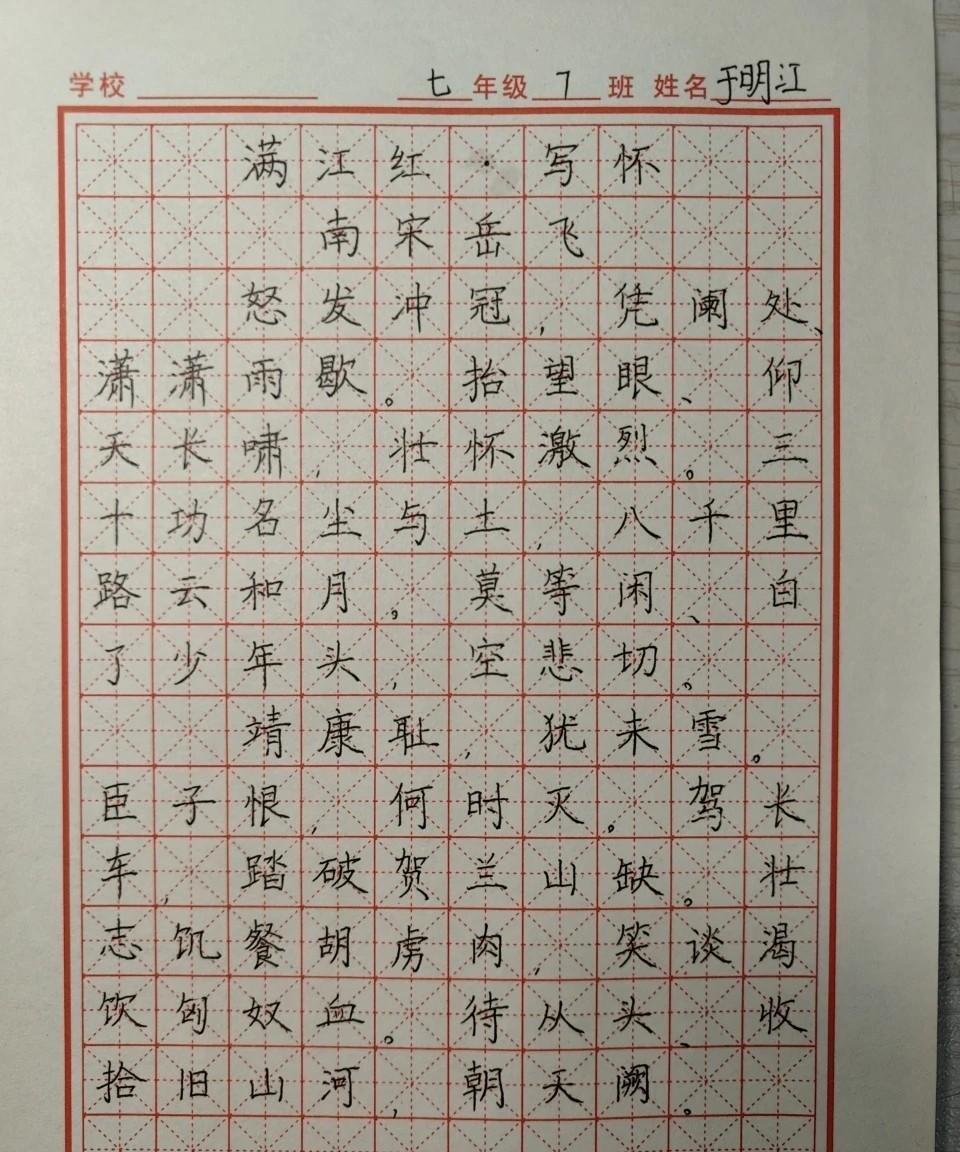 学校 七年级 7 班 姓名于明江
满江红·写怀
南宋岳飞
怒发冲冠,凭阑处、
潇潇雨歇。抬望眼、仰
天长啸,壮怀激烈。三
十功名尘与土,八千里
路云和月。莫等闲、白
了少年头,空悲切。
靖康耻,犹未雪。
臣子恨,何时灭。驾长
车,踏破贺兰山缺。壮
志饥餐胡虏肉,笑谈渴
饮匈奴血。待从头、收
拾旧山河,朝天阙。